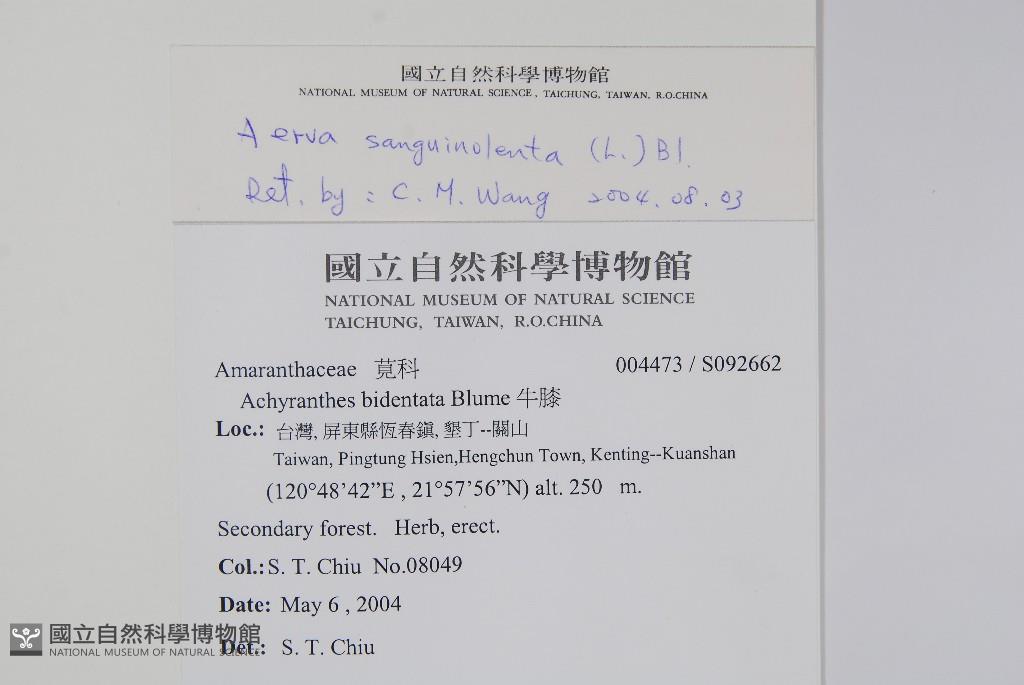 國立自然科學博物館
NATIONAL MUSEUM OF NATURAL SCIENCE, TAICHUNG, TAIWAN, R.O.CHINA
Aerva sanguinolenta (L.) Bl.
Det. by : C. M. Wang 2004.08.03
國立自然科學博物館
NATIONAL MUSEUM OF NATURAL SCIENCE
TAICHUNG, TAIWAN, R.O.CHINA
Amaranthaceae 莧科 004473 / S092662
Achyranthes bidentata Blume 牛膝
Loc.: 台灣, 屏東縣恆春鎮, 墾丁--關山
Taiwan, Pingtung Hsien,Hengchun Town, Kenting--Kuanshan
(120°48'42”E , 21°57'56”N) alt. 250 m.
Secondary forest. Herb, erect.
Col.: S. T. Chiu No.08049
Date: May 6 , 2004
Det.: S. T. Chiu
國立自然科學博物館
NATIONAL MUSEUM OF NATURAL SCIENCE